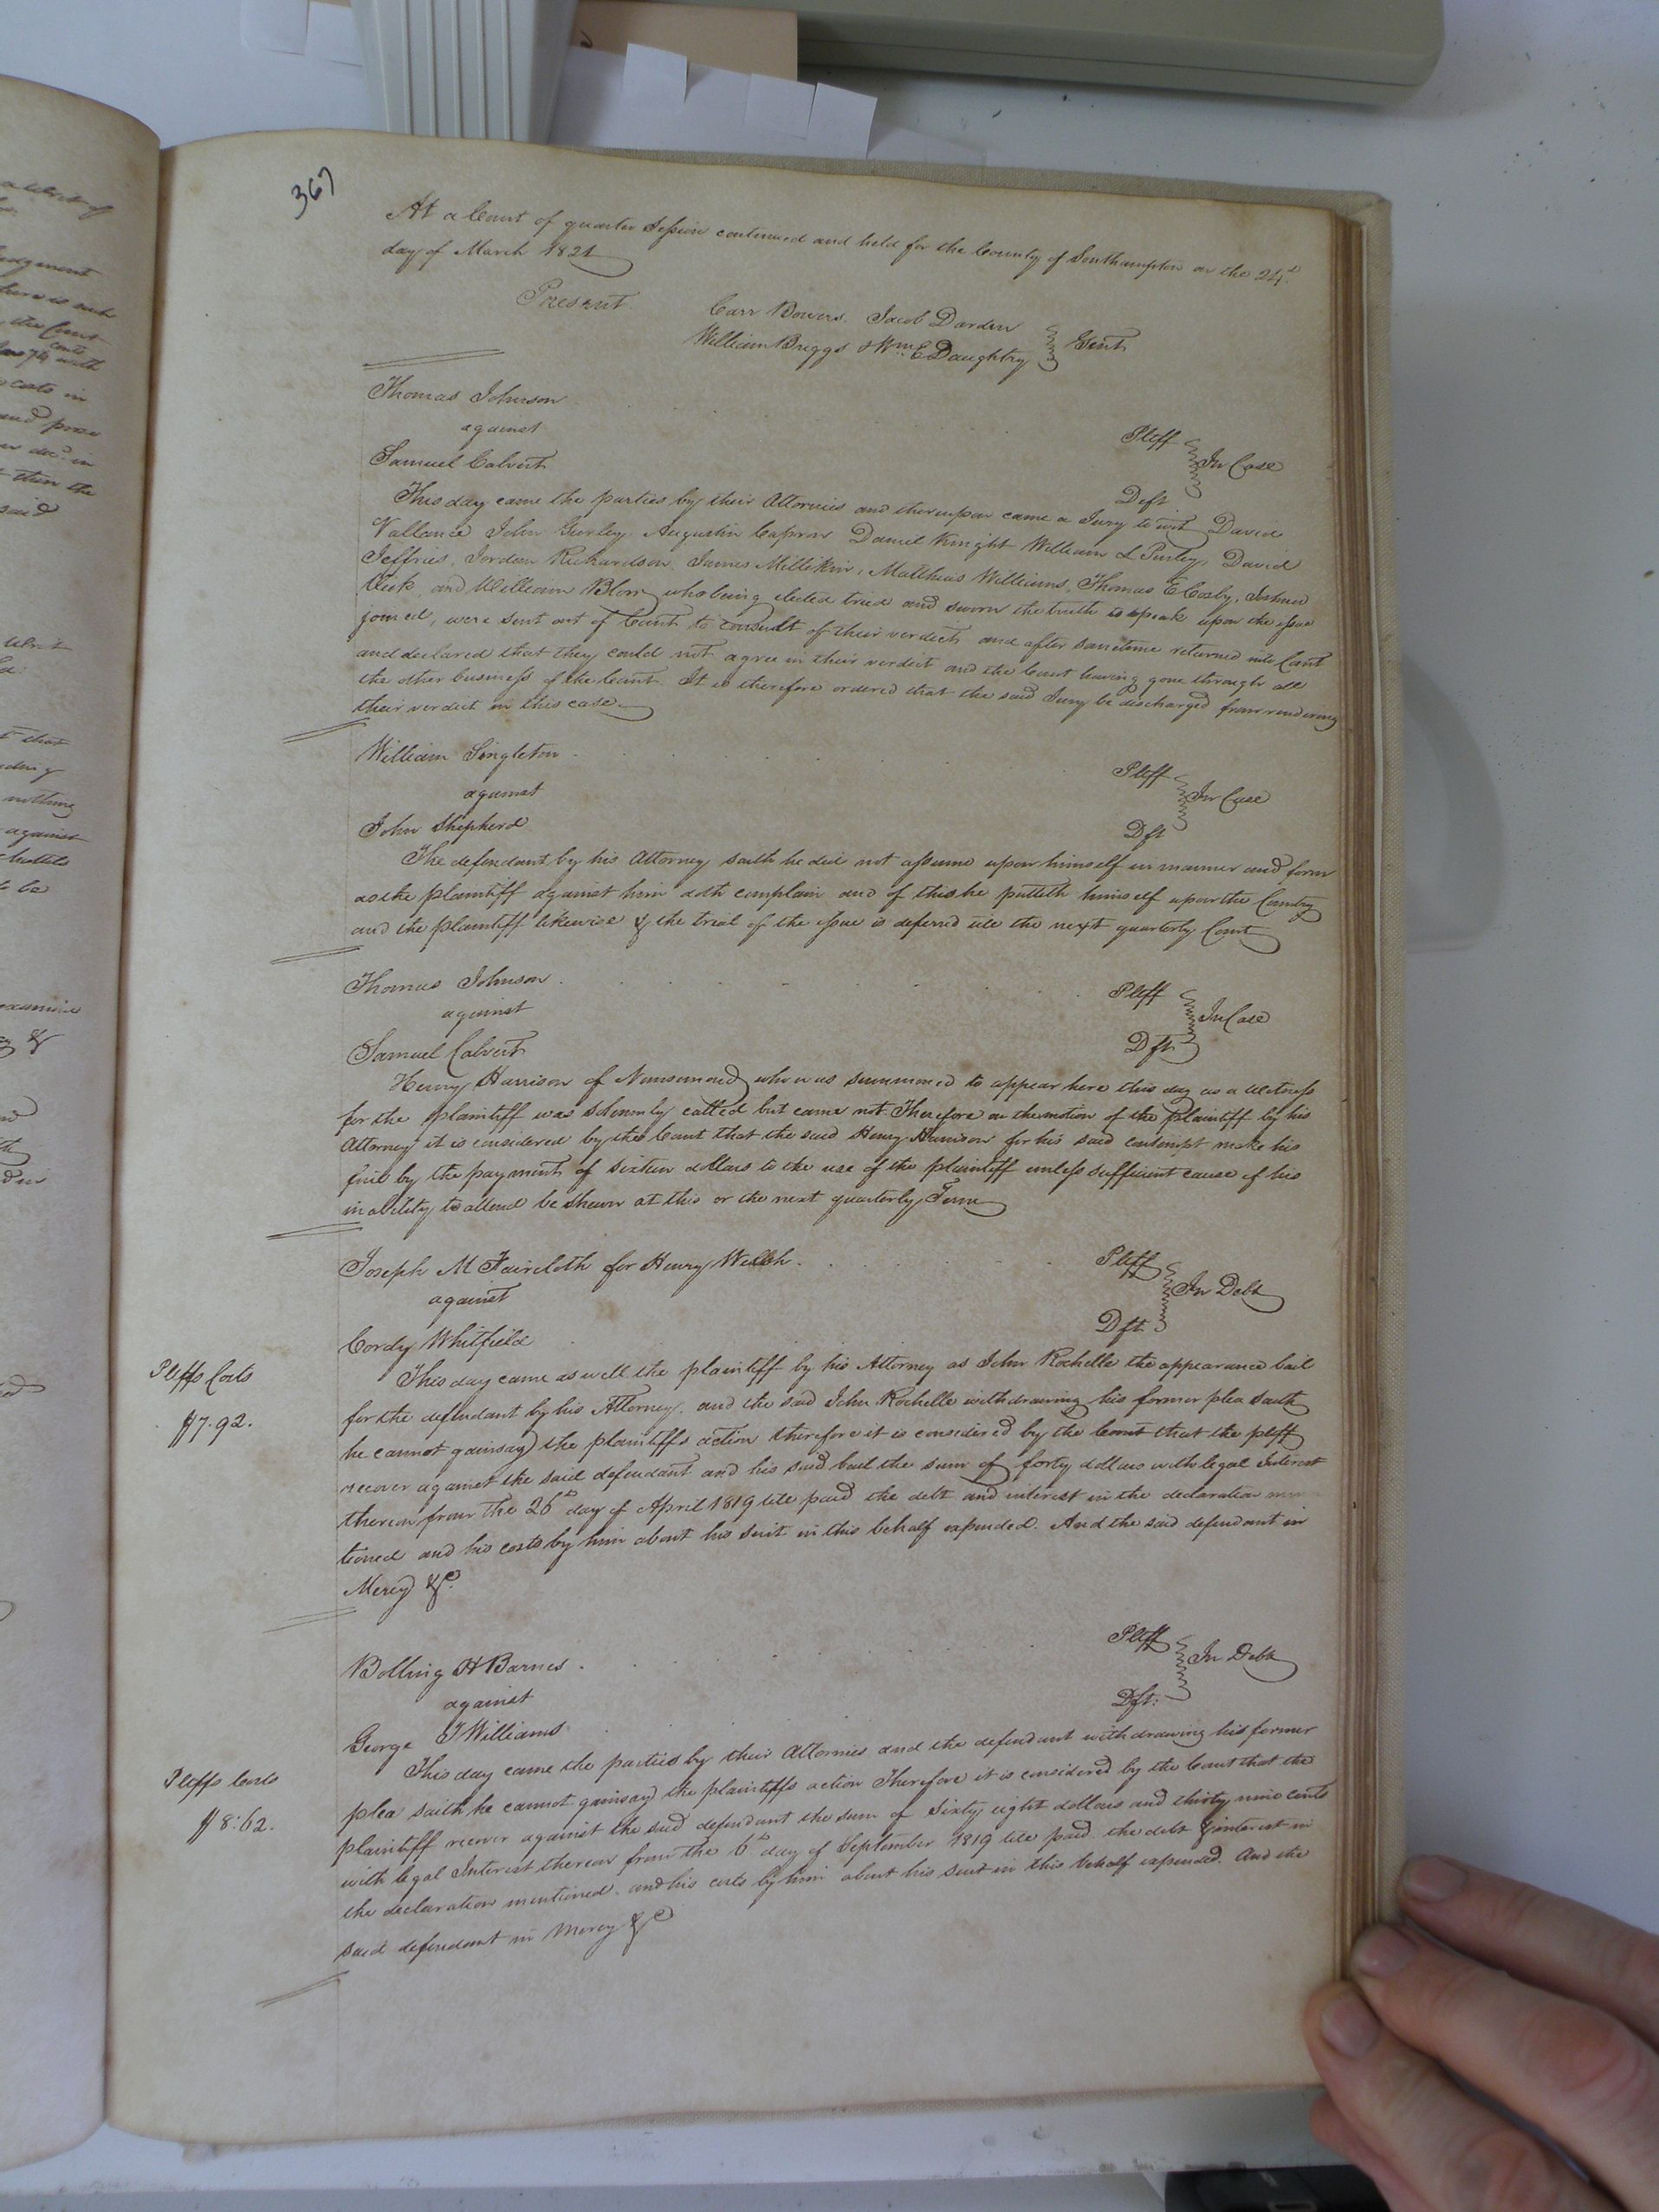 367
At a Court of quarter Session continued and held for the County of Southampton on the 24th
day of March 1821
Present. Carr Bowers. Jacob Darden
William Briggs & Wm E Daughtry Gent
Thomas Johnson Pltff
against In Case
Samuel Calvert Deft
This day came the parties by their Attornies and thereupon came a Jury to wit David
Vallance John Gurley, Augustin Capron Daniel Knight William L Pursley, David
Jeffries, Jordan Richardson, James Millikin, Matthias Williams, Thomas E Cosby, Joshua
and William Blow who being elected tried and sworn the truth to speak upon the issue
joined, were sent out of Court to consult of their verdict and after sometime returned into Court
and declared that they could not agree in their verdict and the Court having gone through all
the other business of the Court. It is therefore ordered that the said Jury be discharged from rendering
their verdict in this case.
William Singleton Pltff
against In Case
John Shepherd Dft
The defendant by his Attorney saith he did not assume upon himself in manner and form
as the plaintiff against him doth complain and of this he putteth himself upon the Country
and the plaintiff likewise & the trial of the issue is deferred till the next quarterly Court
Thomas Johnson Pltff
against In Case
Samuel Calvert Dft
Henry Harrison of Nansemond who was summoned to appear here this day as a witness
for the plaintiff was solemnly called but came not Therefore on the motion of the plaintiff by his
Attorney it is considered by the Court that the said Henry Harrison for his said contempt make his
fine by the payment of sixteen dollars to the use of the plaintiff unless sufficient cause of his
inability to attend be shewn at this or the next quarterly Term
Joseph M Faircloth for Henry Welsh. Pltff
against In Debt
Cordy Whitfield Dft
Pltffs Costs
$7.92.
This day came as well the plaintiff by his Attorney as John Rochelle the appearance bail
for the defendant by his Attorney, and the said John Rochelle withdrawing his former plea saith
he cannot gainsay the plaintiffs action therefore it is considered by the Court that the pltff
recover against the said defendant and his said bail the sum of forty dollars with legal Interest
thereon from the 26th day of April 1819 till paid the debt and interest in the declaration men
tioned and his costs by him about his suit in this behalf expended. And the said defendant in
Mercy &c.
Bolling H Barnes. Pltff
against In Debt
George J Williams Dft.
Pltffs Costs
$8:62.
This day came the parties by their Attornies and the defendant withdrawing his former
plea saith he cannot gainsay the plaintiffs action Therefore it is considered by the Court that the
plaintiff recover against the said defendant the sum of Sixty eight dollars and thirty nine cents
with legal Interest thereon from the 6th day of September 1819 till paid the debt & interest in
the declaration mentioned. and his costs by him about his suit in this behalf expended. And the
said defendant in Mercy &c